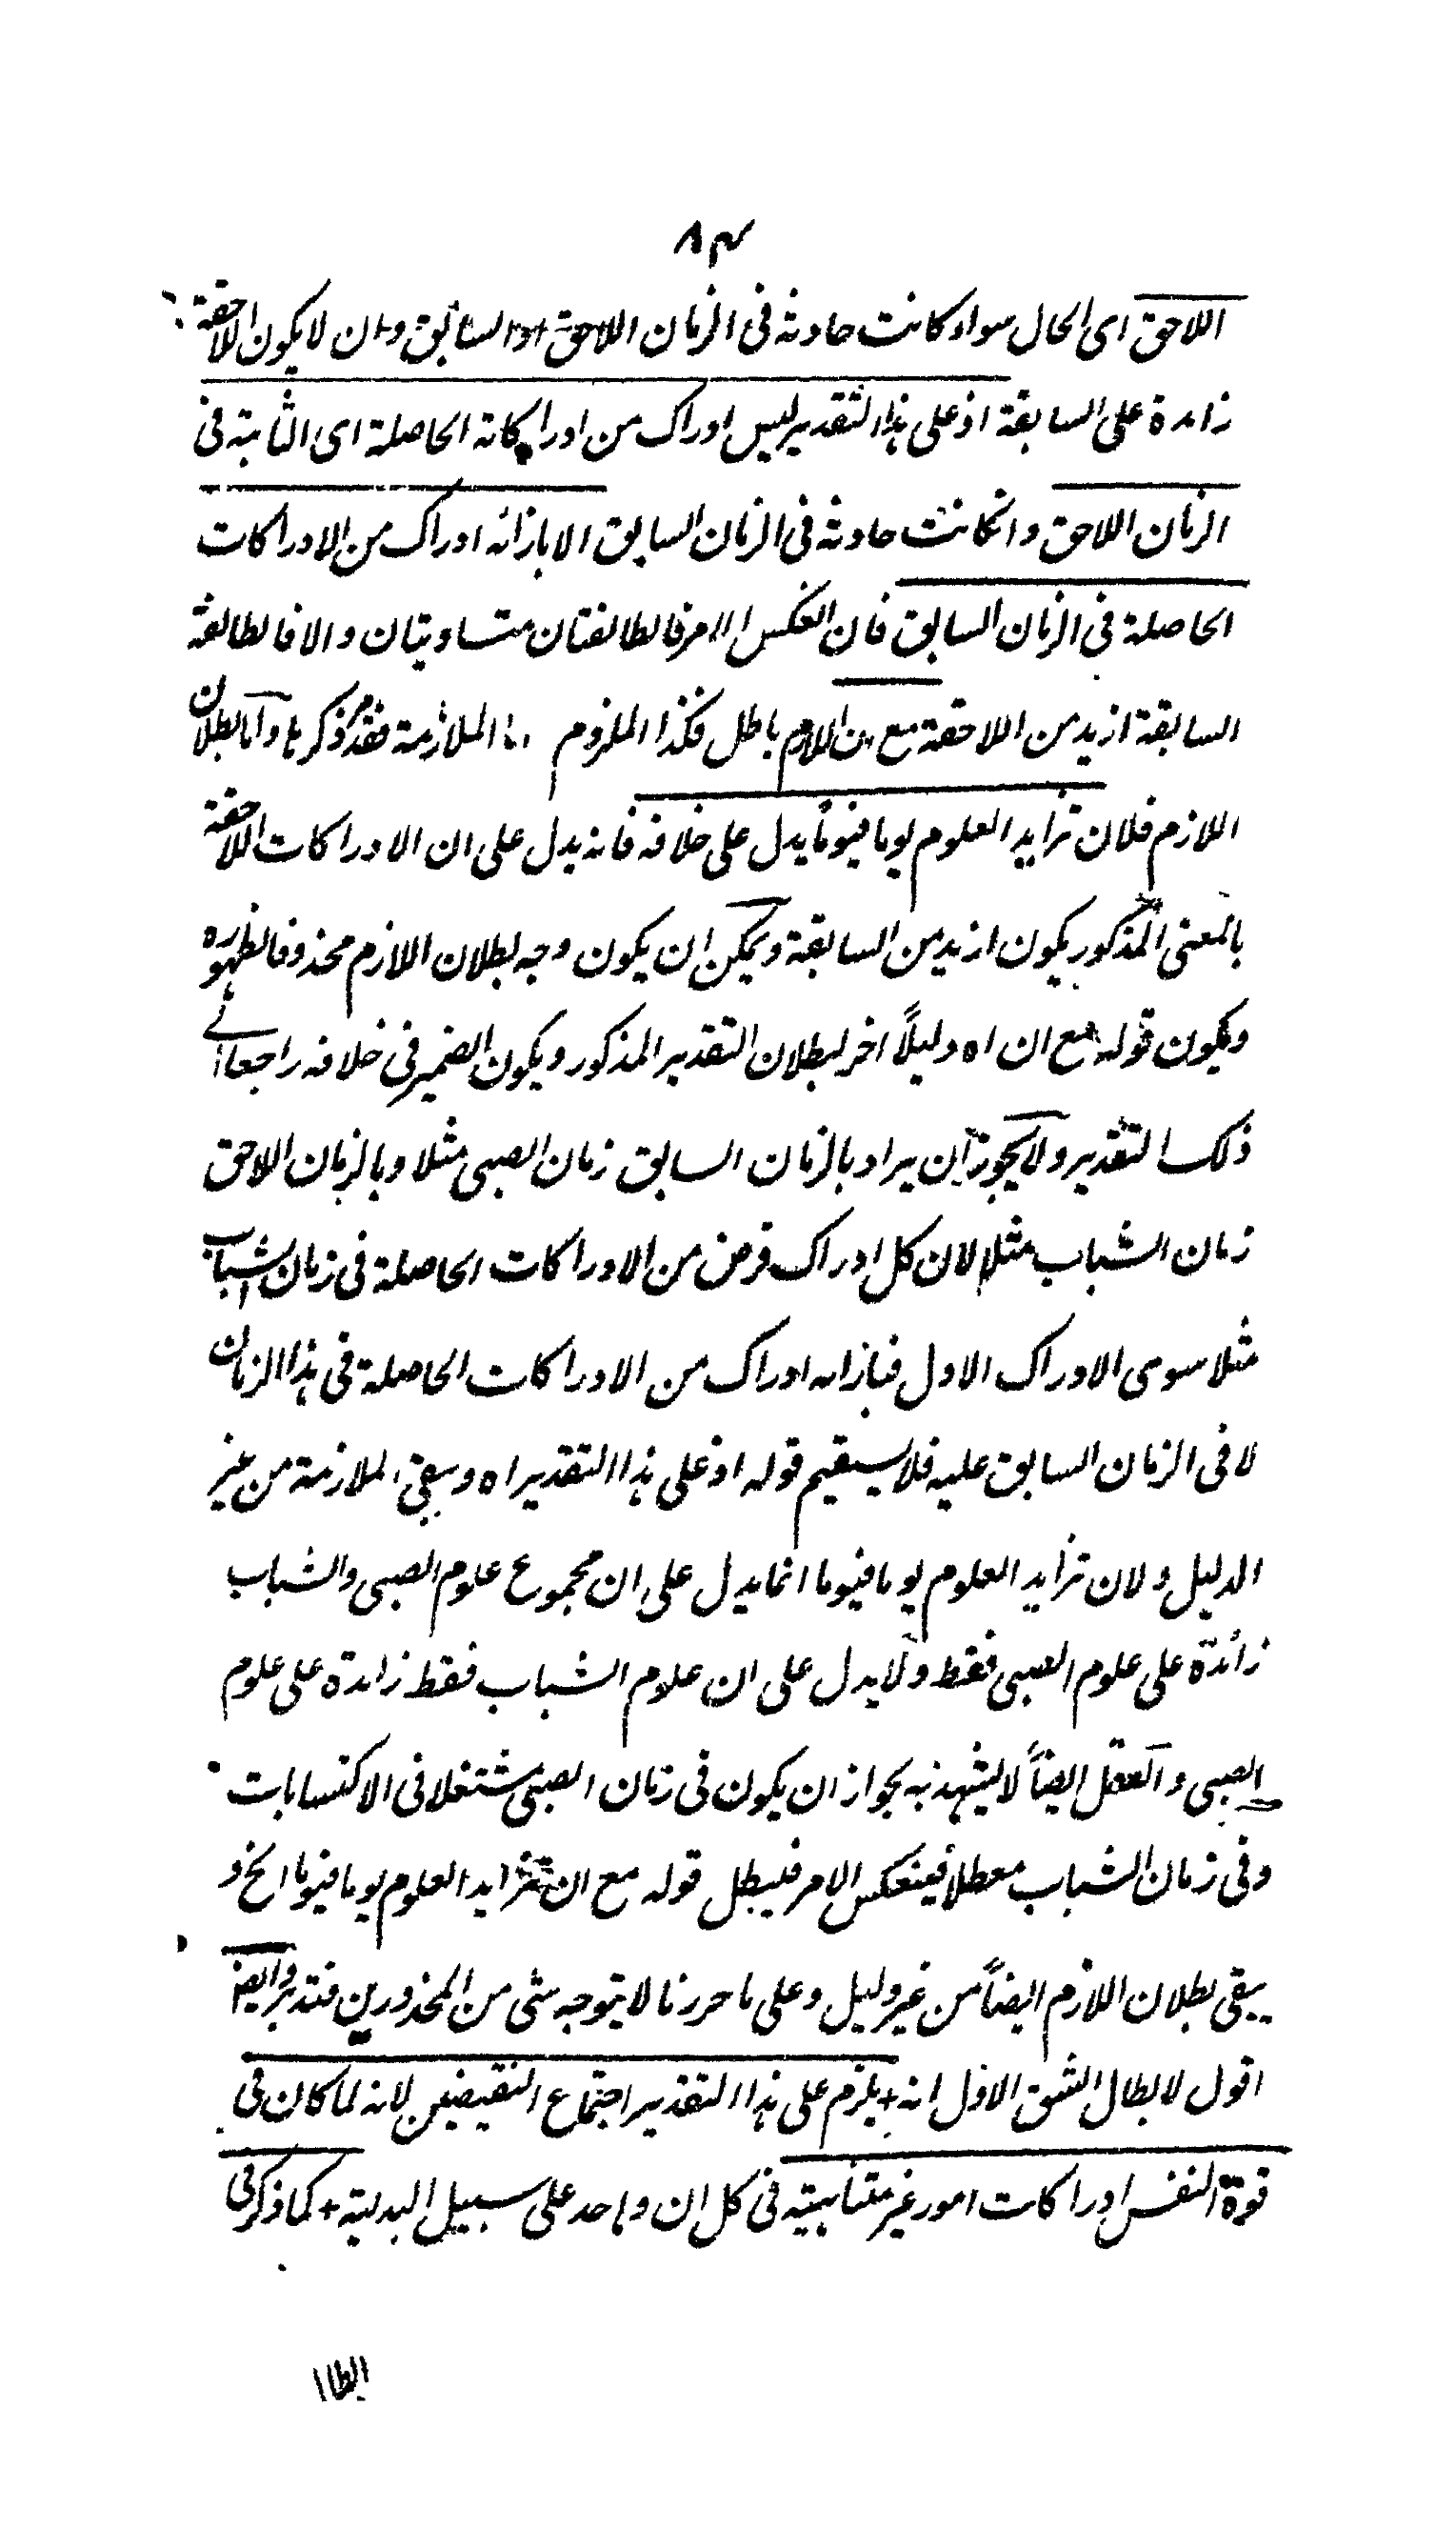 ٨٣
اللاحق اى الحال سواء كانت حادثة فى الزمان اللاحق او السابق وان لا يكون اللاحقة
زائدة على السابقة اذ على هذا التقدير ليس ادراك من ادراكاته الحاصلة اى الثابتة فى
الزمان اللاحق وانكانت حادثة فى الزمان السابق الا بازائه ادراك من الادراكات
الحاصلة فى الزمان السابق فان انعكس الامر فالطائفتان متساويتان والا فالطائفة
السابقة ازيد من اللاحقة مع ان اللازم باطل فكذا الملزوم اما الملازمة فقد مر ذكرها واما بطلان
اللازم فلان تزايد العلوم يوما فيوماً يدل على خلافه فانه يدل على ان الادراكات اللاحقة
بالمعنى المذكور يكون ازيد من السابقة ويمكن ان يكون وجه بطلان اللازم محذوفا لظهوره
ويكون قوله مع ان اه دليلاً اخر لبطلان التقدير المذكور ويكون الضمير فى خلافه راجعا الى
ذلك التقدير ولا يجوز ان يراد بالزمان السابق زمان الصبى مثلا وبالزمان اللاحق
زمان الشباب مثلا لان كل ادراك فرض من الادراكات الحاصلة فى زمان الشباب
مثلا سوى الادراك الاول فبازائه ادراك من الادراكات الحاصلة فى هذا الزمان
لا فى الزمان السابق عليه فلا يستقيم قوله اذ على هذا التقدير اه ويبقى الملازمة من غير
الدليل ولان تزايد العلوم يوما فيوما انما يدل على ان مجموع علوم الصبى والشباب
زائدة على علوم الصبى فقط ولا يدل على ان علوم الشباب فقط زائدة على علوم
الصبى والعقل ايضاً لا يشهد به بجواز ان يكون فى زمان الصبى مشتغلا فى الاكتسابات
وفى زمان الشباب معطلاً فينعكس الامر فيبطل قوله مع ان تزايد العلوم يوما فيوما الخ و
يبقى بطلان اللازم ايضاً من غير دليل وعلى ما حررنا لا يتوجه شى من المحذورين فتدبر وايضا
اقول لابطال الشق الاول انه + يلزم على هذا التقدير اجتماع النقيضين لانه لما كان فى
قوة النفس ادراكات امور غير متناهية فى كل ان واحد على سبيل البدلية + كما ذكر فى